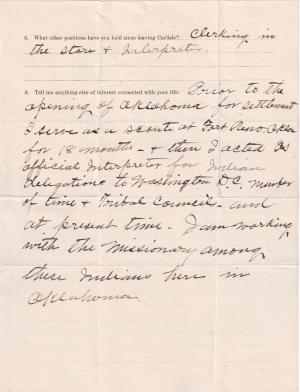 8. What other positions have you held since leaving Carlisle? Clerking in
the store & Interpreter.
9. Tell me anything else of interest connected with your life: Prior to the
opening of Oklahoma for settlement
I serve as a scout at Fort Reno, Okla
for 18 months - & then I acted as
official Interpreter for Indian
delegations to Washington D.C. number
of time & Tribal Council - and
at present time - I am working
with the Missionary among
these Indians here in
Oklahoma